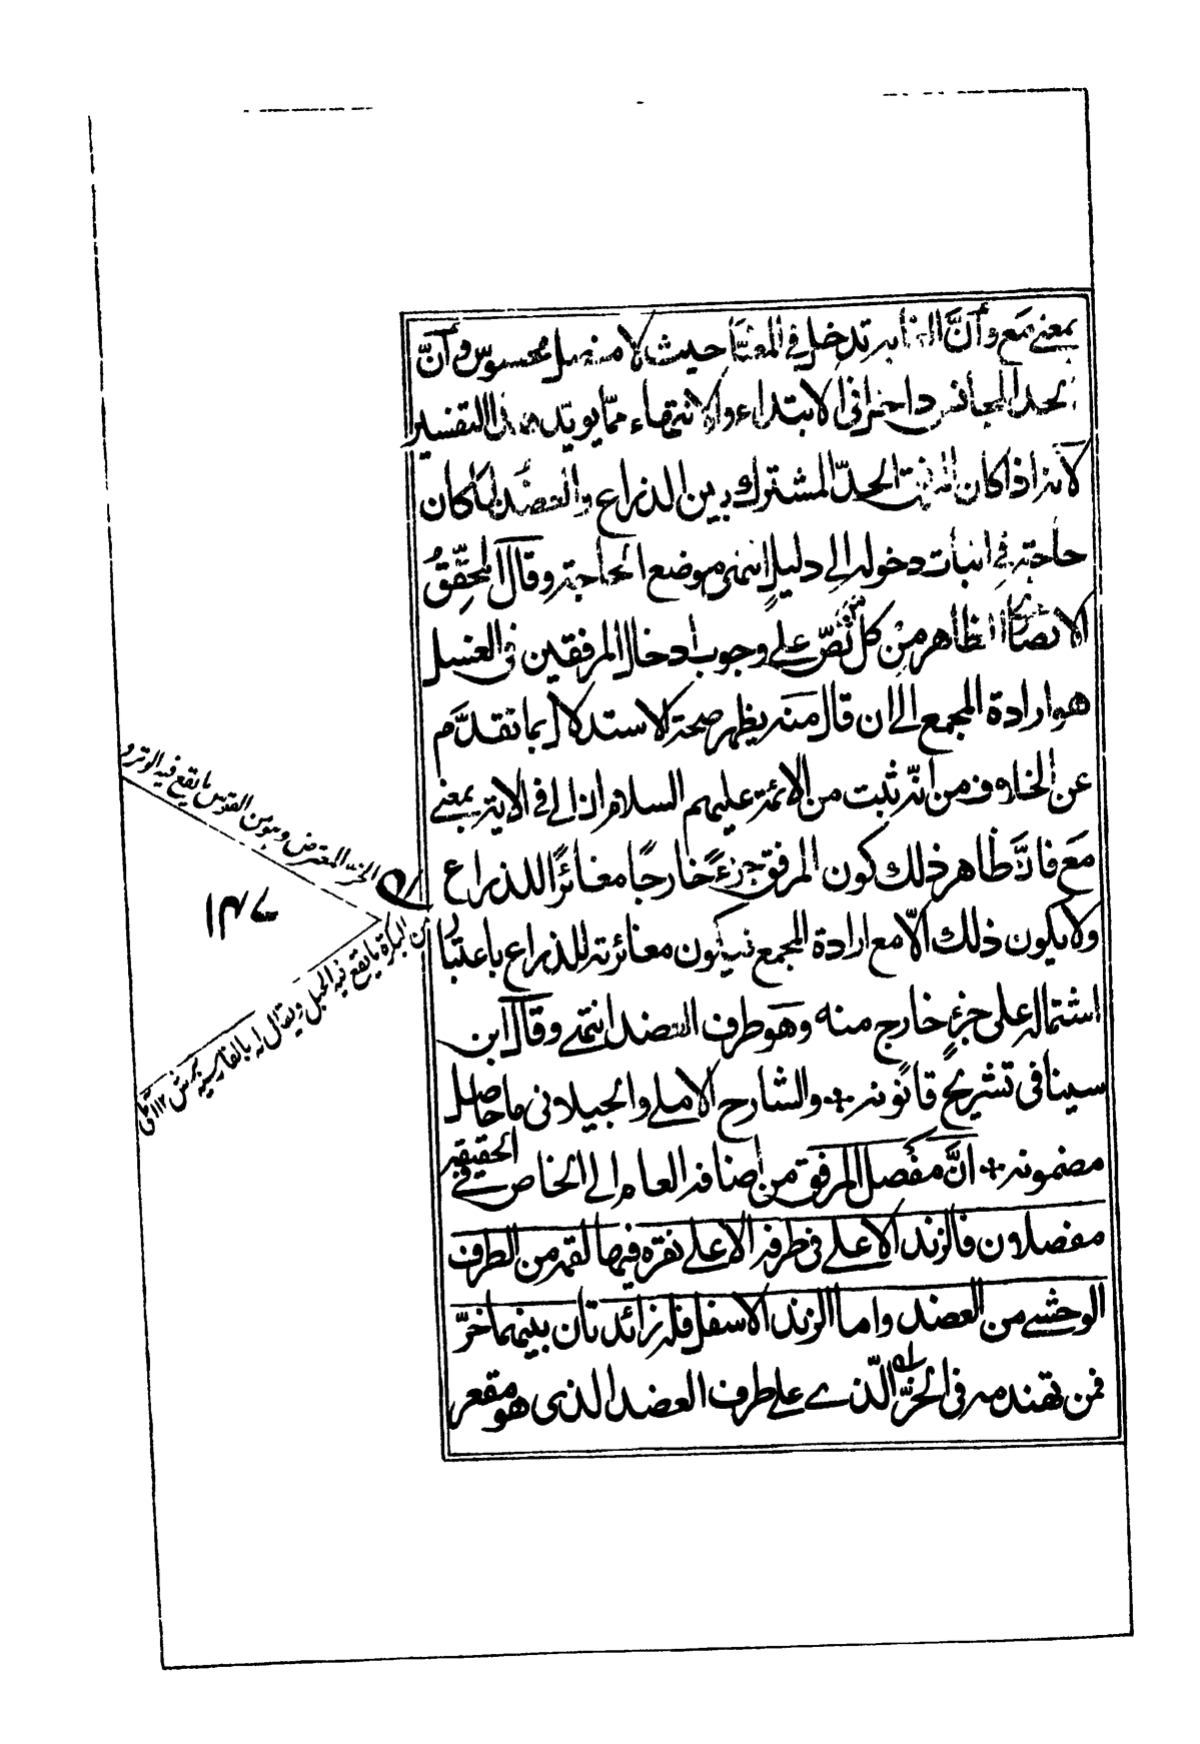 بمعنى مع وأنّ الغاية تدخل في المغيّا حيث لا منفصل محسوس وأنّ
الحد المجانس داخل في الابتداء والانتهاء ممّا يويّد هذا التفسير
لانه اذا كان المرفق الحدّ المشترك بين الذراع والعضد لما كان
حاجة في اثبات دخوله الى دليل انتهى موضع الحاجة وقال المحقّق
الانصارى الظاهر من كلّ من نصّ على وجوب ادخال المرفقين فى الغسل
هو ارادة المجمع الى ان قال منه يظهر صحة الاستدلال بما تقدّم
عن الخلاف من انّه ثبت من الائمة عليهم السلام ان الى فى الاية بمعنى
مع فانّ ظاهر ذلك كون المرفق جزءً خارجًا مغائرًا للذراع
ولا يكون ذلك الّا مع ارادة المجمع فيكون مغائرته للذراع باعتبار
اشتماله على جزءٍ خارج منه وهو طرف العضد انتهى وقال ابن
سينا فى تشريح قانونه والشارح الاملى والجيلانى ما حاصل
مضمونه انّ مفصل المرفق من اضافة العام الى الخاص فى الحقيقة
مفصلان فالزند الاعلى فى طرفه الاعلى نقره فيها لقمة من الطرف
الوحشى من العضد واما الزند الاسفل فله زائدتان بينهما حزّ
فمن تهندمه فى الحزّ الّذى على طرف العضد الذى هو مقعر
الحزّ المعترض وهو من القوس ما يقع فيه الوتر و
من البكرة ما يقع فيه الحبل ويقال له بالفارسية
۱۴۷